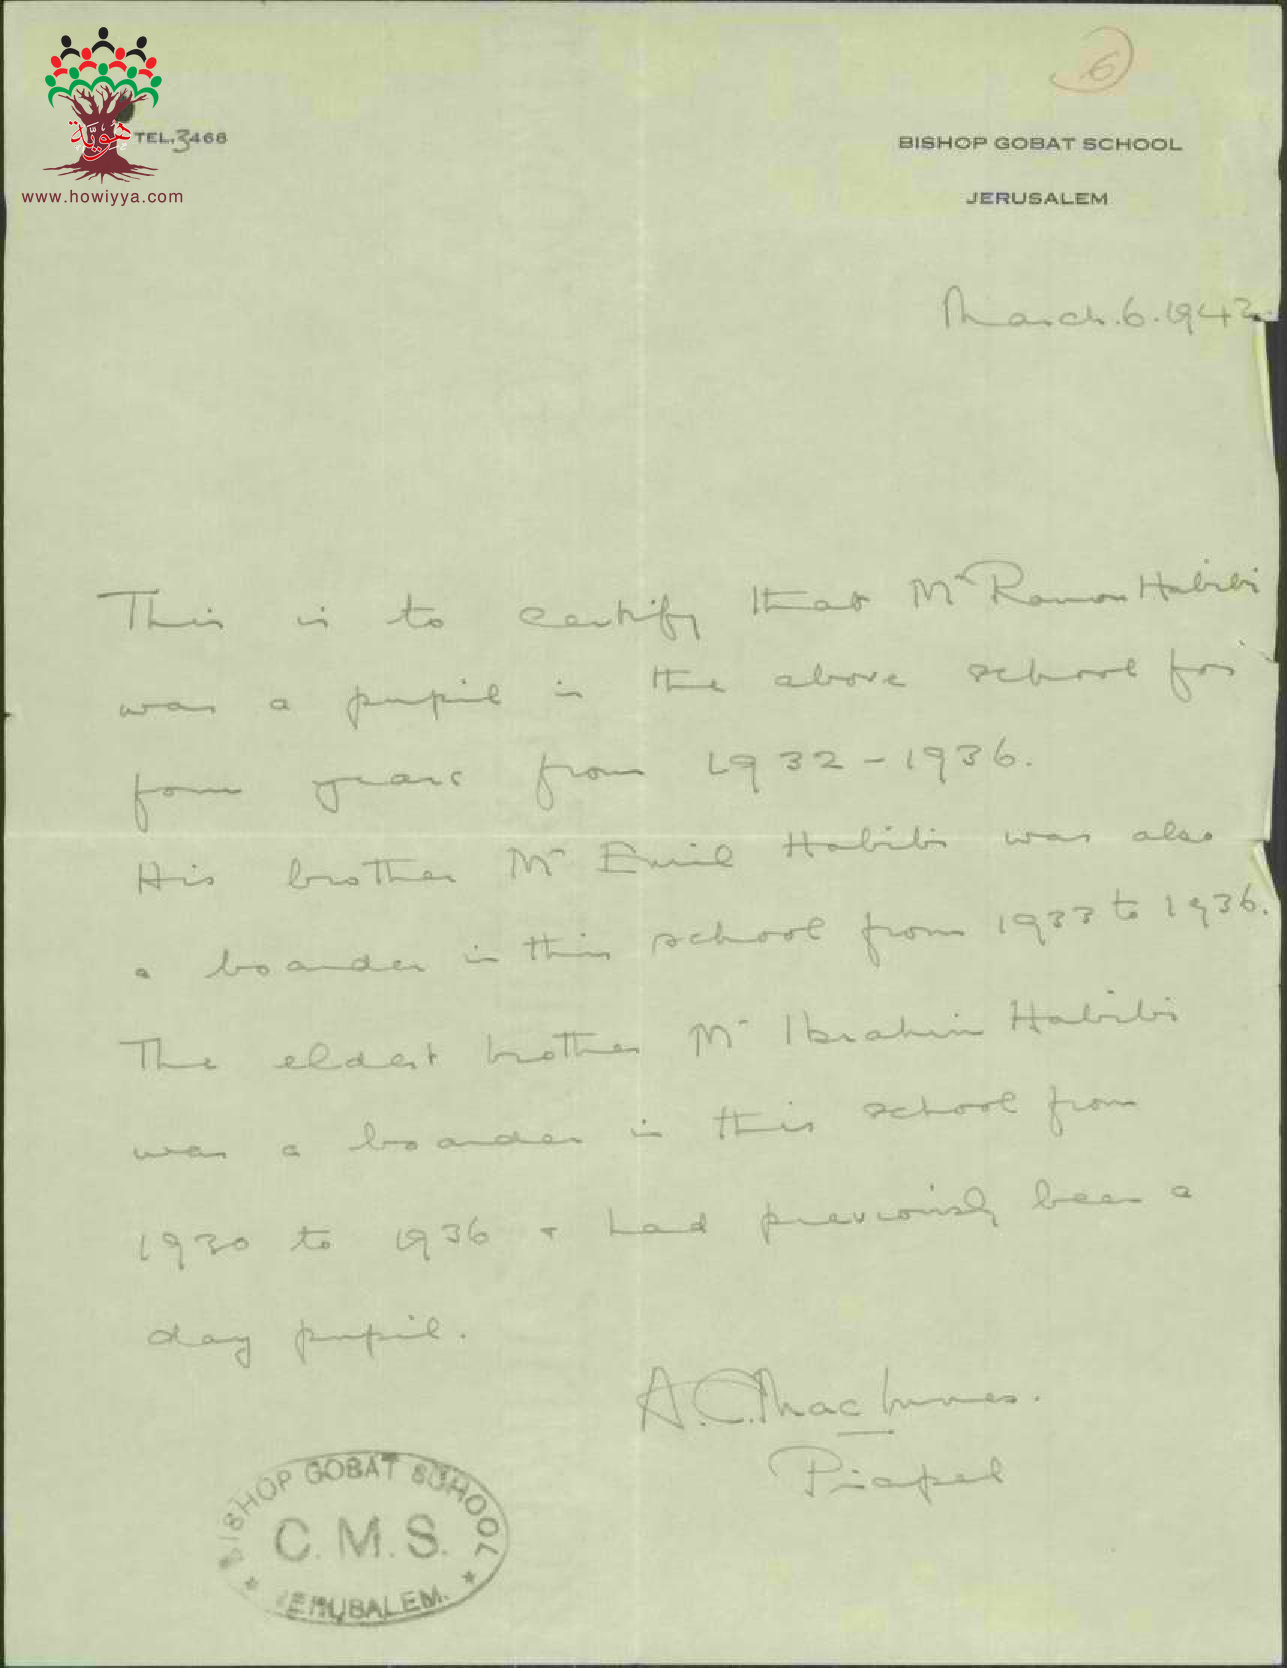 هويّة
www.howiyya.com
TEL. 3468
6
BISHOP GOBAT SCHOOL
JERUSALEM
March. 6. 1942.
This is to certify that Mr Ramon Habibi
was a pupil in the above school for
four years from 1932 - 1936.
His brother Mr Emil Habibi was also
a boarder in this school from 1933 to 1936.
The eldest brother Mr Ibrahim Habibi
was a boarder in this school from
1930 to 1936 + had previously been a
day pupil.
A.C. MacInnes.
BISHOP GOBAT SCHOOL
C. M. S.
JERUSALEM.